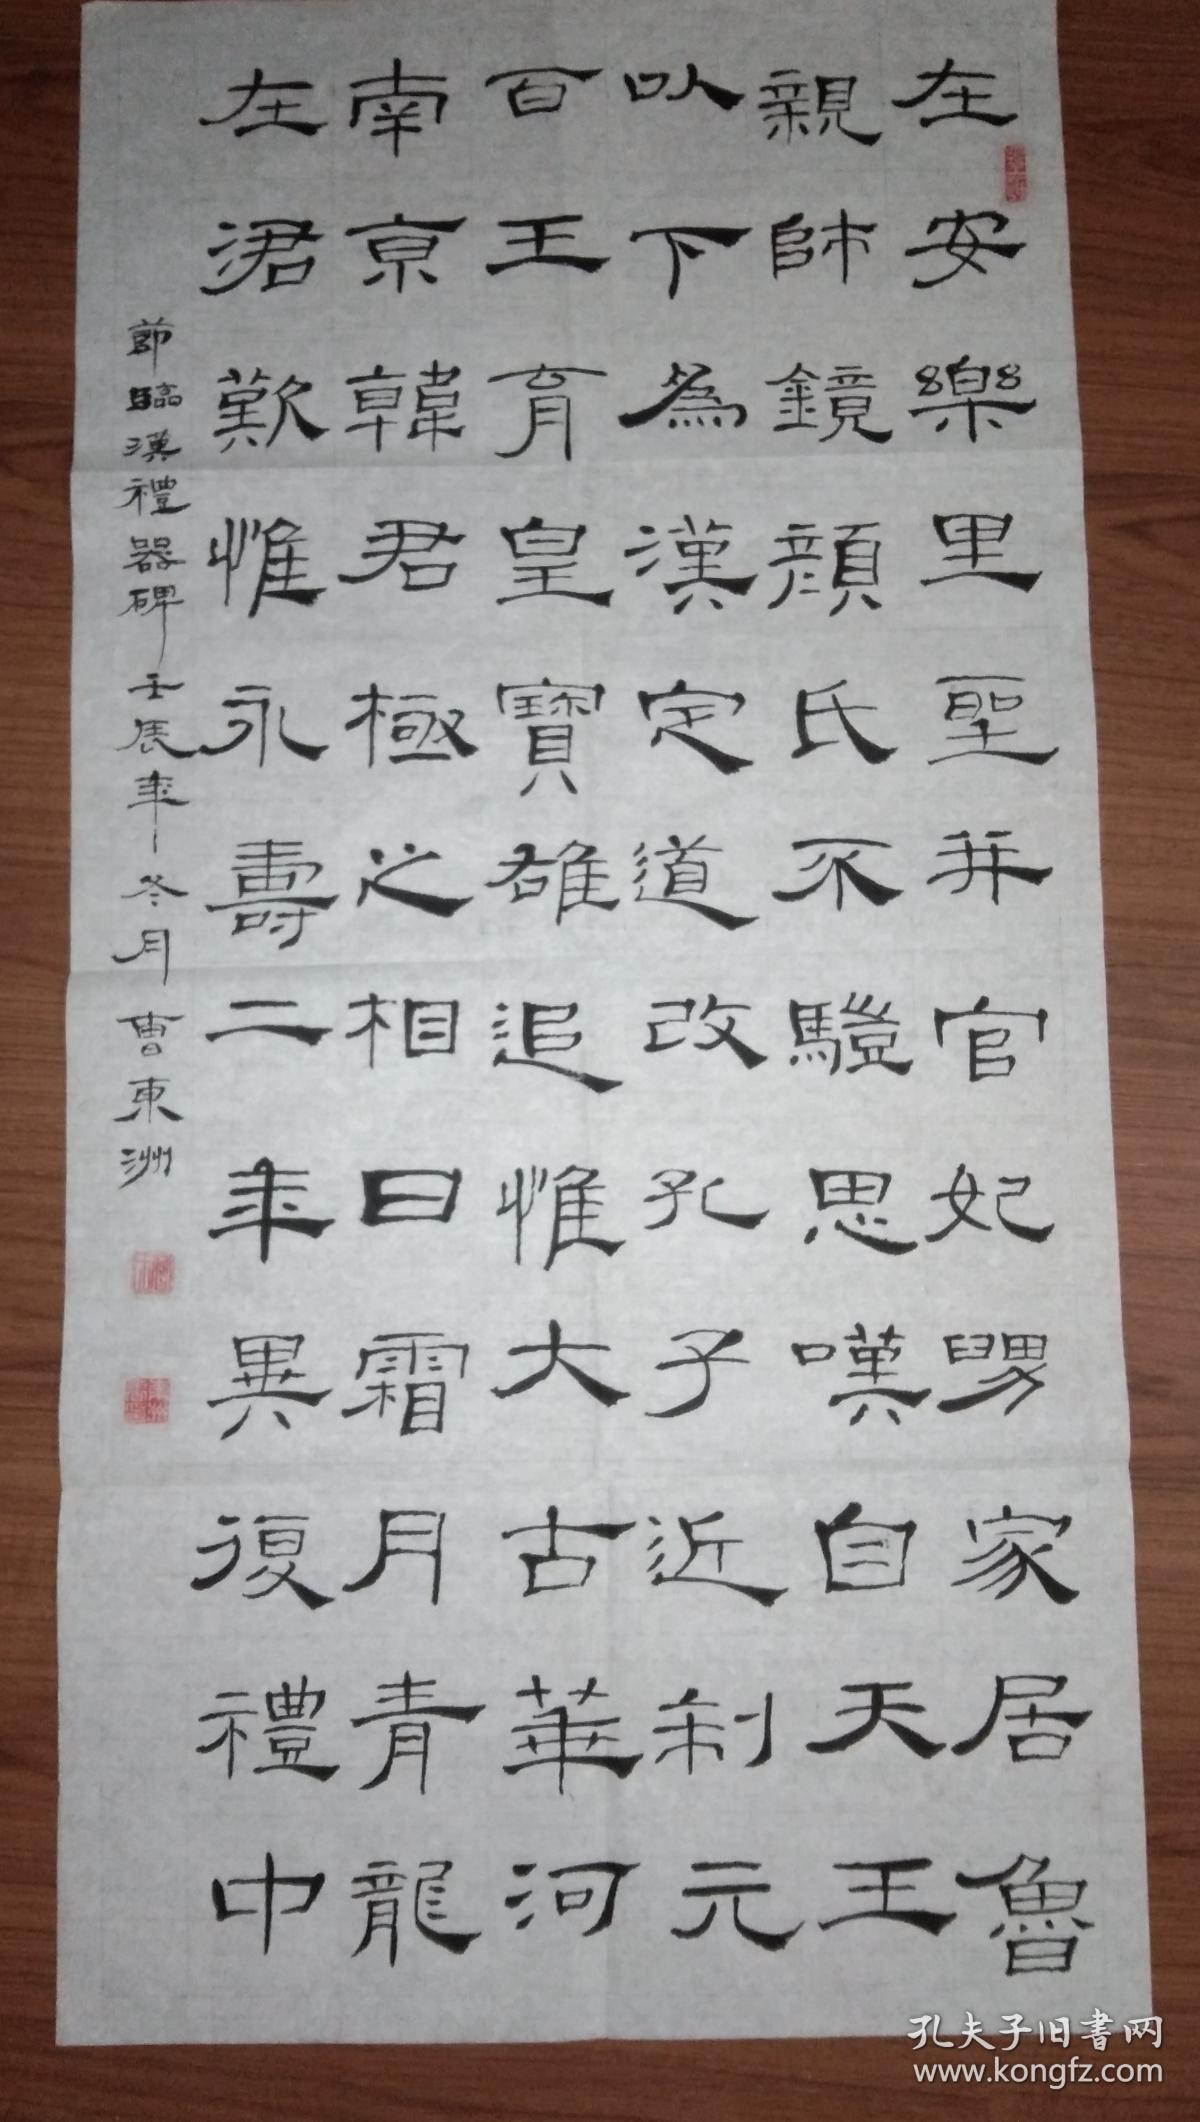 在安樂里聖并官妃舅家居魯
親帥鏡顏氏不驥思嘆自天王
以下為漢定道改孔子近制元
百王育皇寶雄追惟大古華河
南京韓君極之相曰霜月青龍
在涒歎惟永壽二年異復禮中
節臨漢禮器碑壬辰年冬月曹東洲
孔夫子旧書网
www.kongfz.com